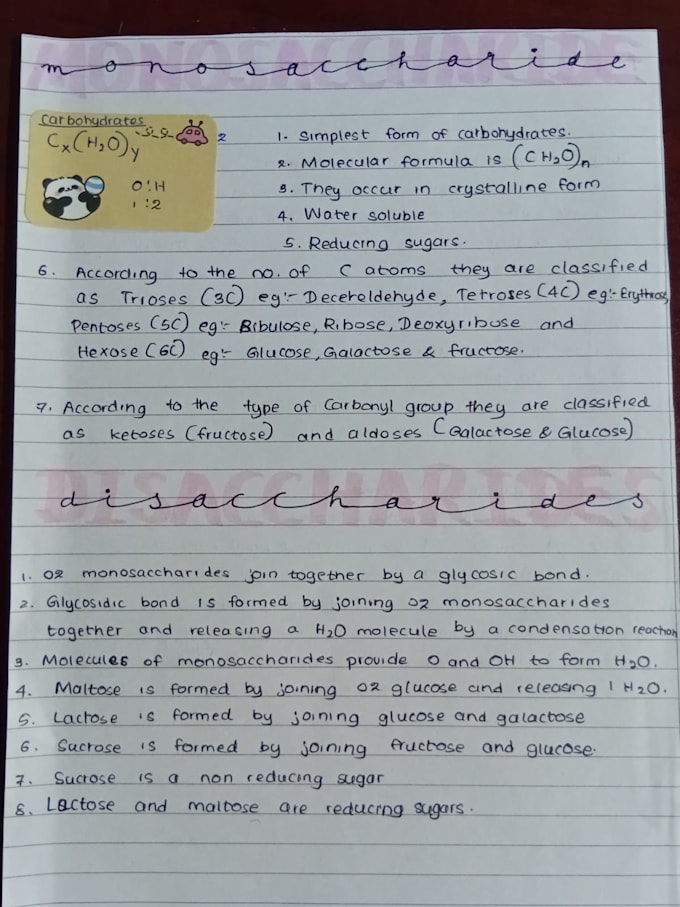 monosaccharide
MONOSACCHARIDE
Carbohydrates
Cₓ(H₂O)ᵧ
2
O:H
1:2
1. Simplest form of carbohydrates.
2. Molecular formula is (CH₂O)ₙ
3. They occur in crystalline form
4. Water soluble
5. Reducing sugars.
6. According to the no. of C atoms they are classified
as Trioses (3C) eg:- Decereldehyde, Tetroses (4C) eg:- Erythrose,
Pentoses (5C) eg:- Bibulose, Ribose, Deoxyribuse and
Hexose (6C) eg:- Glucose, Galactose & fructose.
7. According to the type of Carbonyl group they are classified
as ketoses (fructose) and aldoses (Galactose & Glucose)
disaccharides
DISACCHARIDES
1. 02 monosaccharides join together by a glycosic bond.
2. Glycosidic bond is formed by joining 02 monosaccharides
together and releasing a H₂O molecule by a condensation reaction
3. Molecules of monosaccharides provide O and OH to form H₂O.
4. Maltose is formed by joining 02 glucose and releasing 1 H₂O.
5. Lactose is formed by joining glucose and galactose
6. Sucrose is formed by joining fructose and glucose.
7. Sucrose is a non reducing sugar
8. Lactose and maltose are reducing sugars.